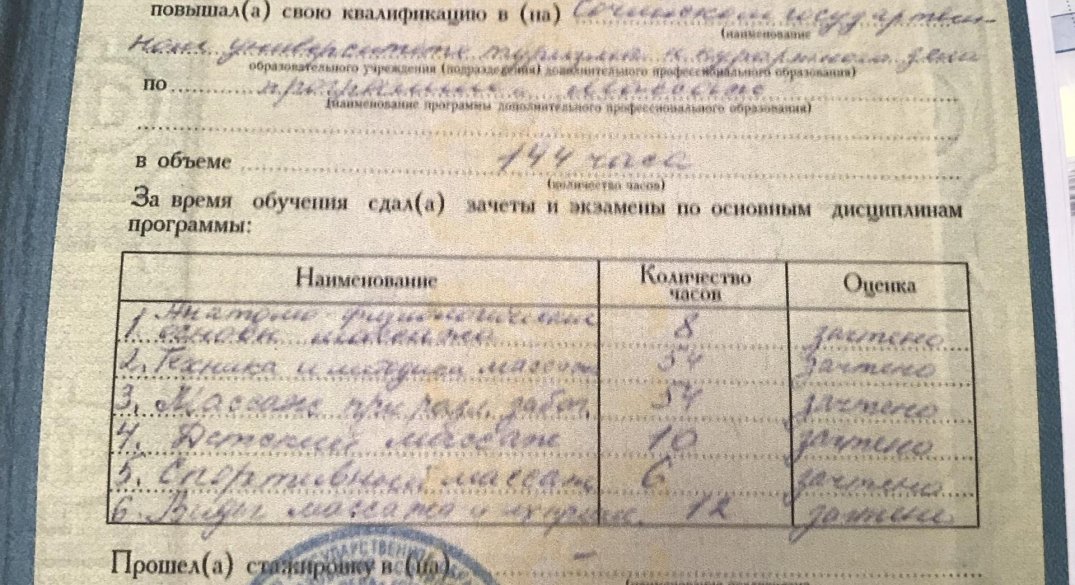 повышал(а) свою квалификацию в (на) Сочинском государствен-
(наименование
ном университете туризма и курортного дела
образовательного учреждения (подразделения) дополнительного профессионального образования)
по программе массаж
(наименование программы дополнительного профессионального образования)
в объеме 144 часа
(количество часов)
За время обучения сдал(а) зачеты и экзамены по основным дисциплинам
программы:
Наименование Количество часов Оценка
1. Анатомо-физиологические
основы массажа 8 зачтено
2. Техника и методика массажа 54 зачтено
3. Массаж при разл. забол. 54 зачтено
4. Детский массаж 10 зачтено
5. Спортивный массаж 6 зачтено
6. Виды массажа и их прим. 12 зачтено
Прошел(а) стажировку в (на) –
ГОСУДАРСТВЕННЫЙ